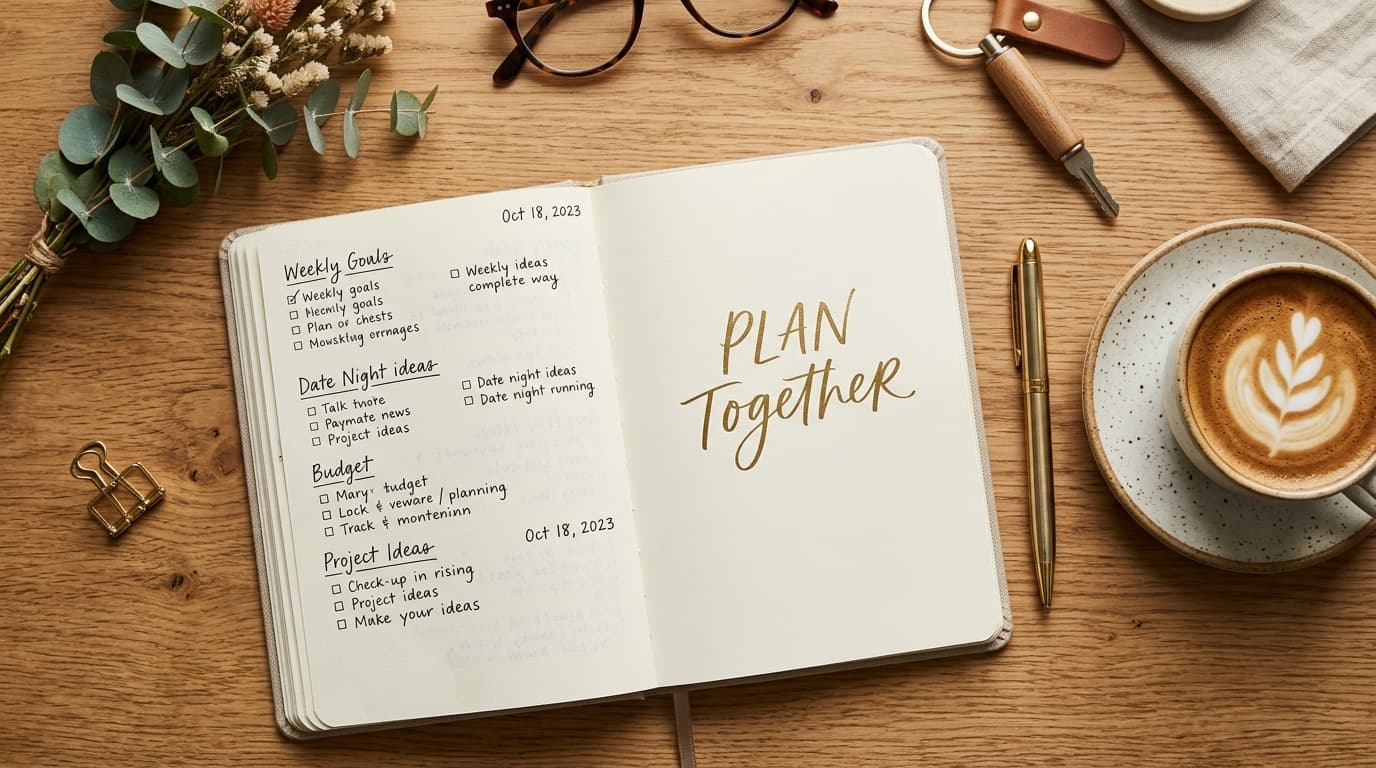 Oct 18, 2023
Weekly Goals
Weekly goals
goals
Plan of chests
Weekly ideas
complete way
Date Night ideas
Talk
Paymate news
Project ideas
Date night ideas
Date night running
Budget
Mary
Lock & veware / planning
Track &
Oct 18, 2023
Project Ideas
Check-up in rising
Project ideas
Make your ideas
PLAN
Together